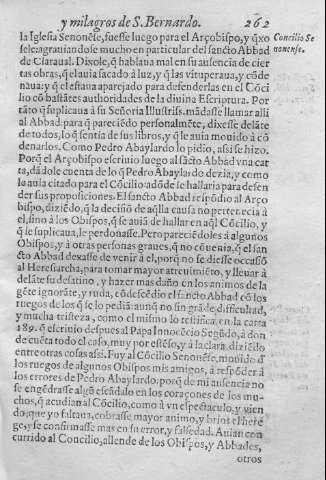 y milagros de S. Bernardo. 262
la Iglesia Senonẽse, fuesse luego para el Arçobispo, y q̃xo
Concilio Se
nonense.
sele: agrauiandose mucho en particular del sancto Abbad
de Claraual. Dixole, q̃ hablaua mal en su ausencia de cier
tas obras, q̃ el auia sacado à luz, y q̃ las vituperaua, y cõde
naua: y q̃ el estaua aparejado para defenderlas en el Cõci
lio cõ bastãtes authoridades de la diuina Escriptura. Por
tãto q̃ suplicaua à su Señoria Illustriss. mãdasse llamar alli
al Abbad: para q̃ pareciẽdo personalmẽte, dixesse delãte
de todos, lo q̃ sentia de sus libros, y q̃ le auia mouido à cõ
denarlos. Como Pedro Abaylardo lo pidio, assi se hizo.
Porq̃ el Arçobispo escriuio luego al sãcto Abbad vna car
ta, dãdole cuenta de lo q̃ Pedro Abaylardo dezia, y como
le auia citado para el Cõcilio adõde se hallaria para defen
der sus proposiciones. El sancto Abbad respõdio al Arço
bispo, diziẽdo, q̃ la decisiõ de aq̃lla causa no pertenecia à
el, sino à los Obispos, q̃ se auiã de hallar en aq̃l Cõcilio, y
q̃ le suplicaua, le perdonasse. Pero pareciẽdoles à algunos
Obispos, y à otras personas graues, q̃ no cõuenia, q̃ el san
cto Abbad dexasse de venir à el, porq̃ no se diesse occasiõ
al Heresiarcha, para tomar mayor atreuimiẽto, y lleuar à
delãte su desatino, y hazer mas daño en los animos de la
gẽte ignorãte, y ruda, cõdescẽdio el sancto Abbad cõ los
ruegos de los q̃ se lo pediã: aunq̃ no sin grãde difficultad,
y mucha tristeza, como el mismo lo testifica en la carta
189. q̃ escriuio despues al Papa Innocẽcio Segũdo, à don
de cuẽta todo el caso, muy por estẽso, y à la clara, diziẽdo
entre otras cosas assi. Fuy al Cõcilio Senonẽse, mouido d̃
los ruegos de algunos Obispos mis amigos, à respõder à
los errores de Pedro Abaylardo, porq̃ de mi ausencia no
se engẽdrasse algũ escãdalo en los coraçones de los mu-
chos, q̃ acudian al Cõcilio, como à vn espectaculo, y vien
do, que yo faltaua, cobrasse mayor animo, y brio el Here
ge, y se confirmasse mas en su error, y falsedad. Auian con
currido al Concilio, allende de los Obispos, y Abbades,
otros